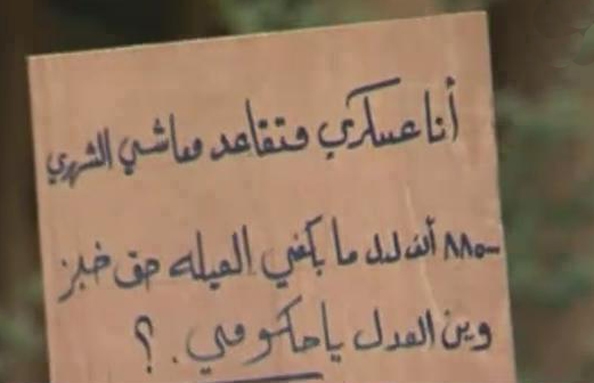 أنا عسكري متقاعد معاشي الشهري
٨٨٠٠٠ ألف ليل ما بكفي العيله حق خبز
وين العدل يا حكومي . ؟